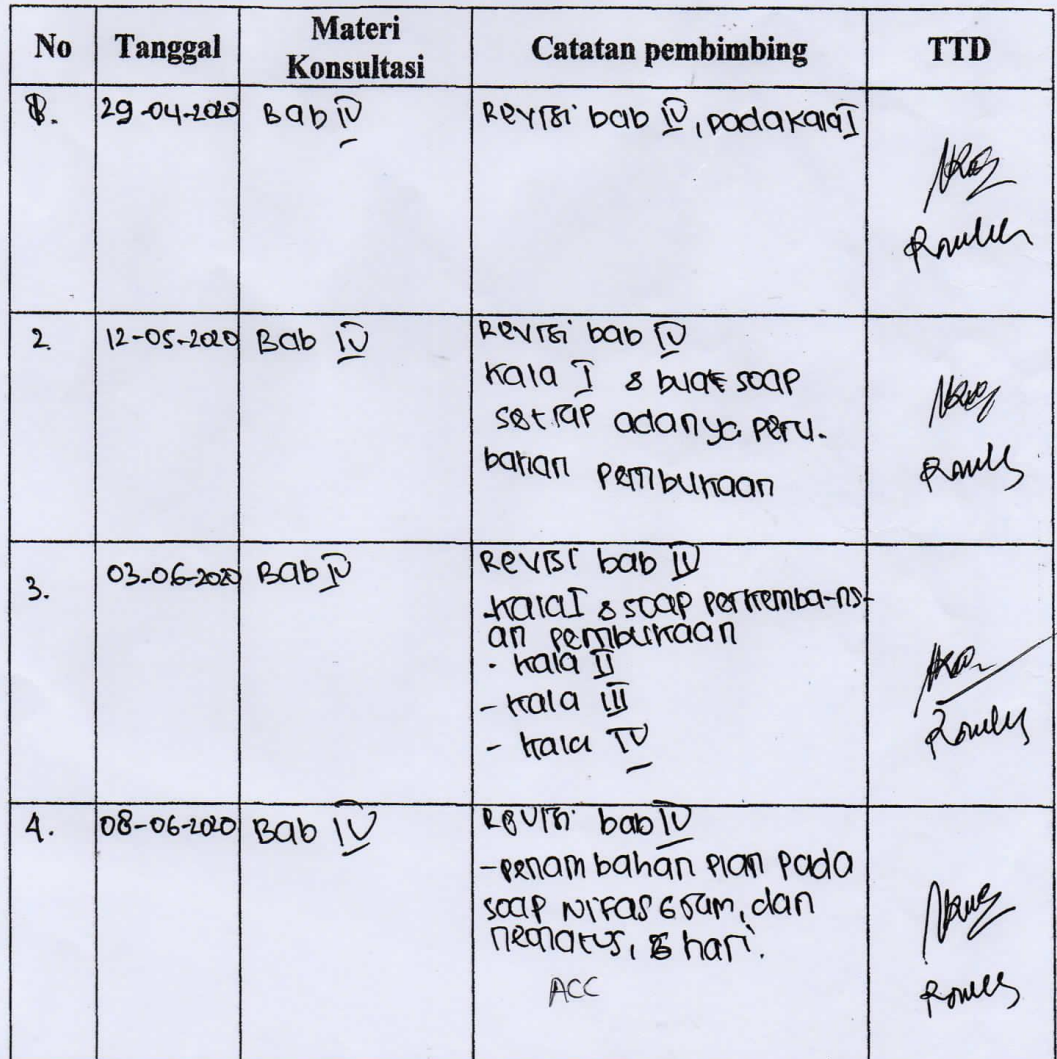 No Tanggal Materi Konsultasi Catatan pembimbing TTD
1. 29-04-2020 Bab IV Revisi bab IV, pada kala I
2. 12-05-2020 Bab IV Revisi bab IV
kala I & buat soap
setiap adanya peru-
bahan pembukaan
3. 03-06-2020 Bab IV Revisi bab IV
-kala I & soap perkemba-ng-
an pembukaan
- kala II
- kala III
- kala IV
4. 08-06-2020 Bab IV Revisi bab IV
-penambahan plan pada
soap nifas 6 jam, dan
neonatus, hari.
ACC